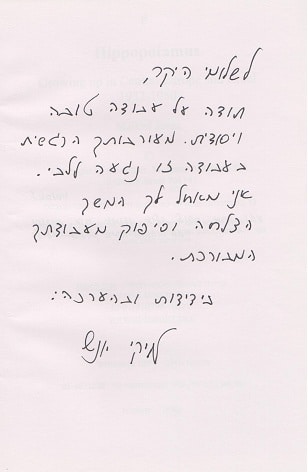 לשלומי היקר,
תודה על עבודה טובה
ויסודית. מעורבותך הרגשית
בעבודה זו נגעה ללבי.
אני מאחל לך המשך
הצלחה וסיפוק מעבודתך
המבורכת.
בידידות ובהערכה: